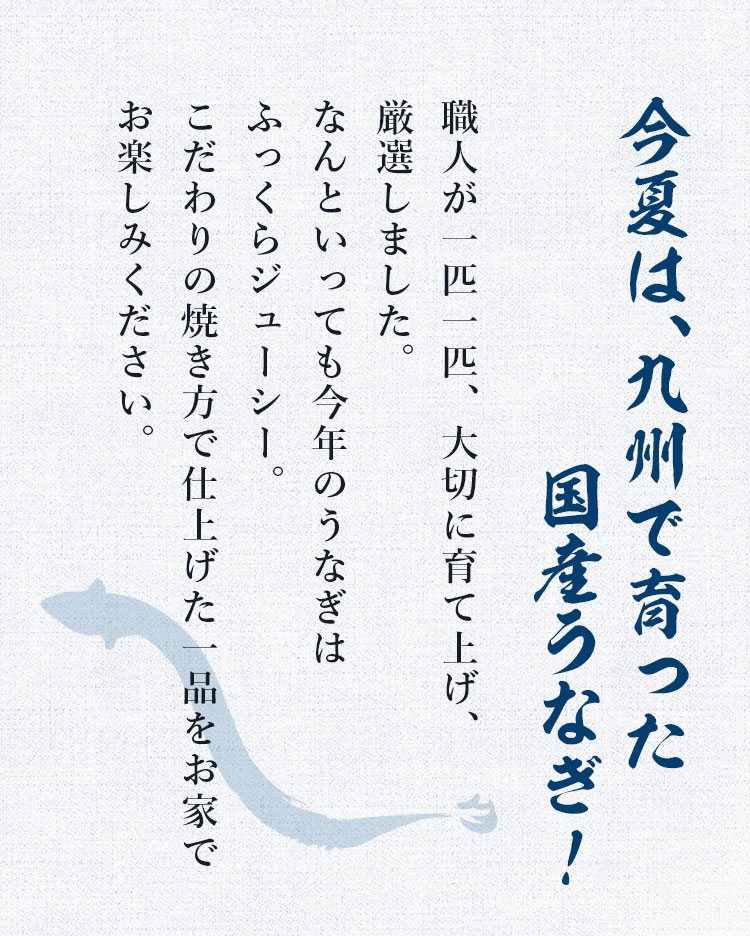 今夏は、九州で育った
国産うなぎ!
職人が一匹一匹、大切に育て上げ、
厳選しました。
なんといっても今年のうなぎは
ふっくらジューシー。
こだわりの焼き方で仕上げた一品をお家で
お楽しみください。